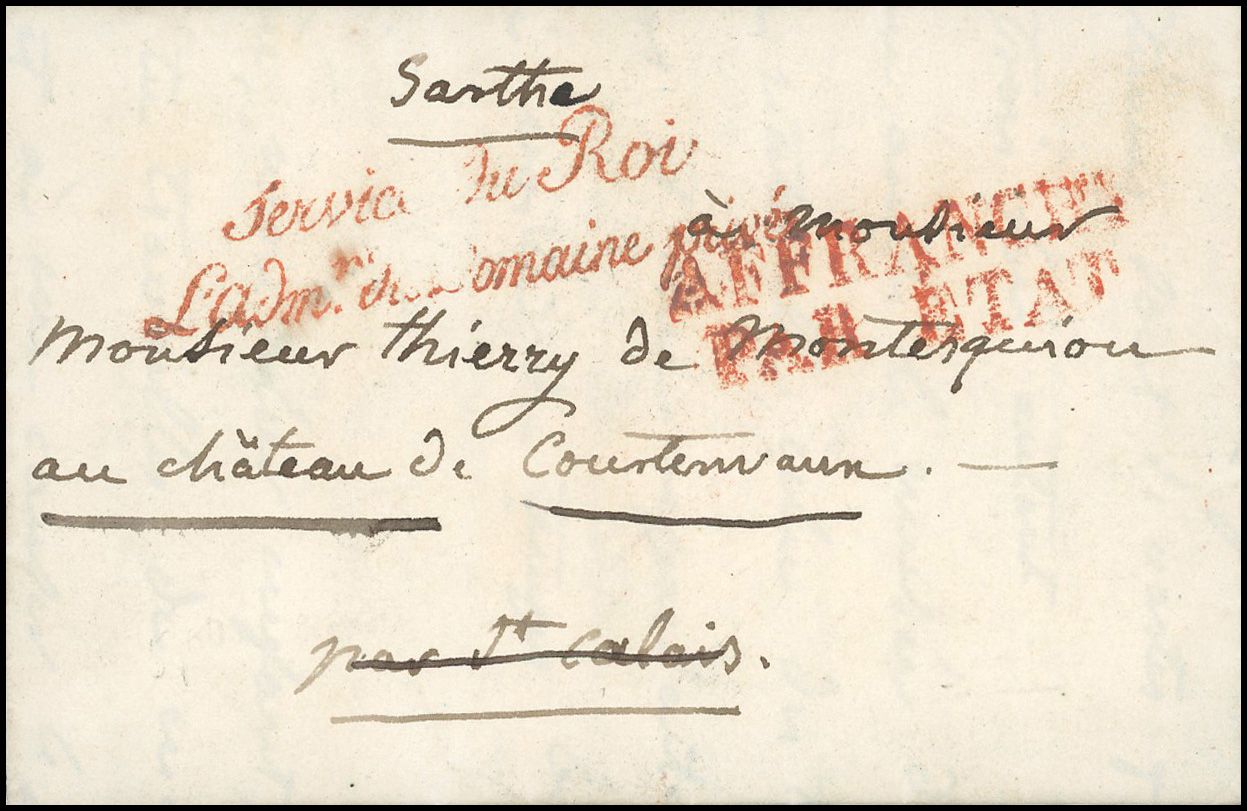 Sarthe
Service du Roi
L'adm.n du Domaine privé
à Monsieur
AFFRANCHI
PAR ETAT
Monsieur thierry de Montesquiou
au château de Courtenvaux.
par St Calais.